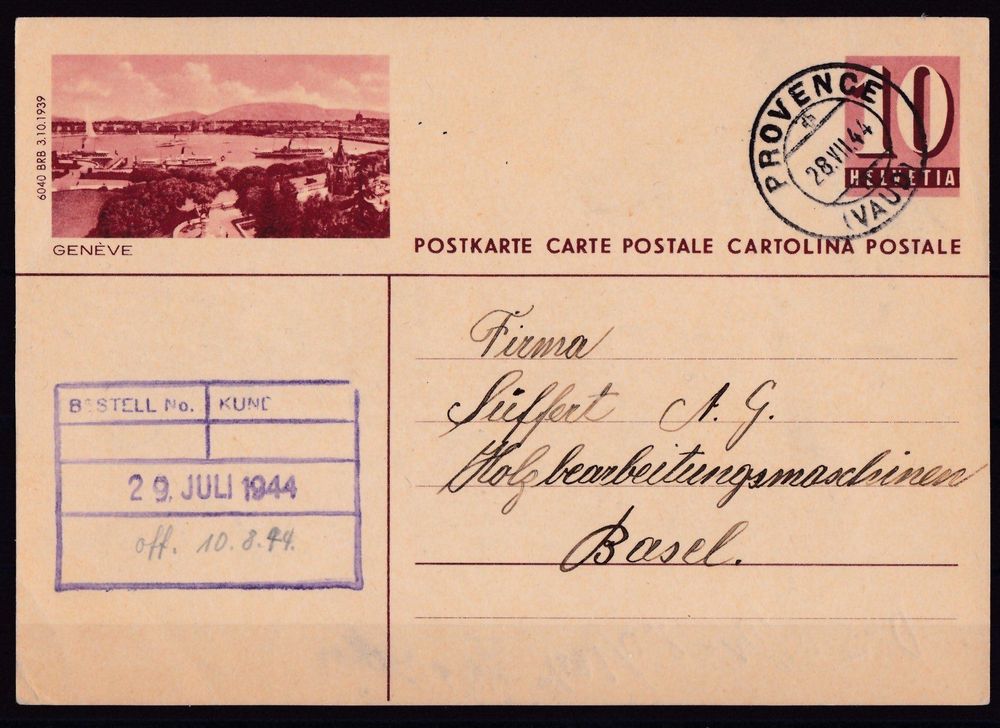 6040 BRB 3.10.1939
GENÈVE
PROVENCE
28.VII.44
(VAUD)
10
HELVETIA
POSTKARTE CARTE POSTALE CARTOLINA POSTALE
Firma
Süffert A. G.
Holzbearbeitungsmaschinen
Basel.
BESTELL No. KUND
29. JULI 1944
off. 10.8.44.